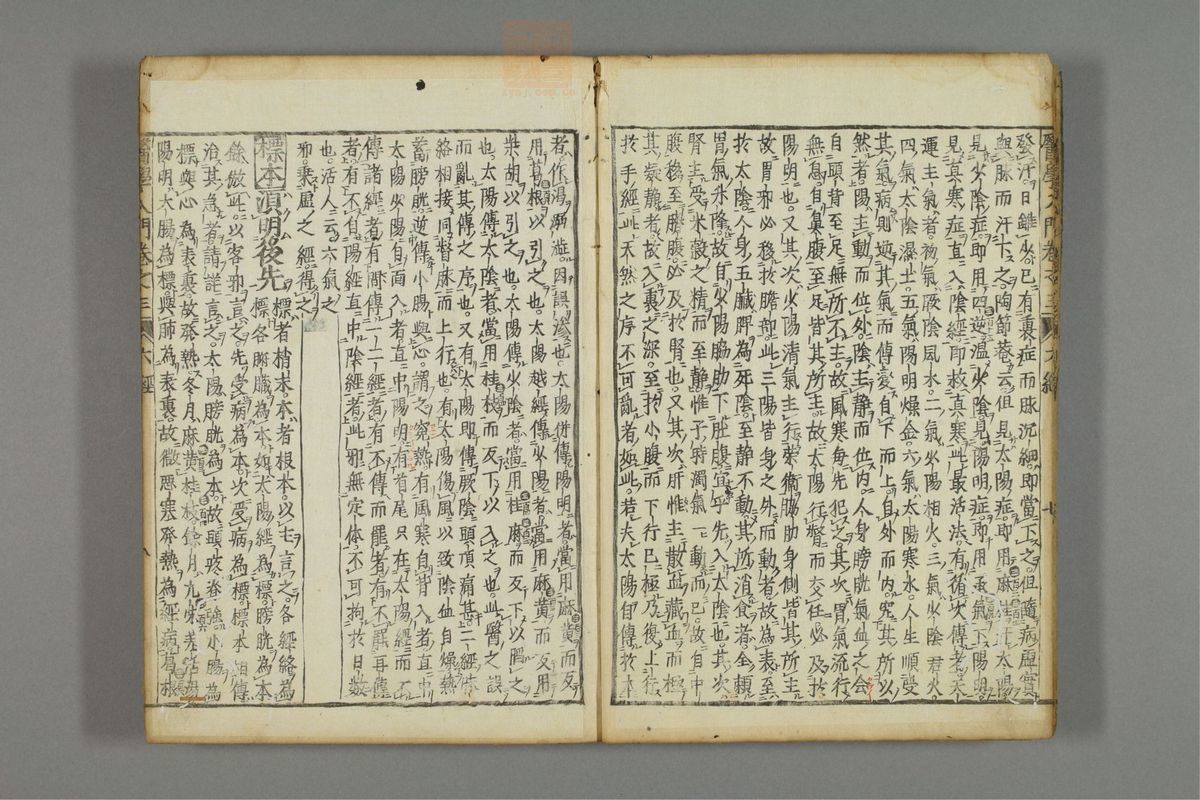 醫學入門卷之三　六經
發汗曰雖不已有裏症而脉沉細即當下之但隨病虛實
與脉而汗下之陶節菴云但見太陽症即用麻黃汗太陽
見少陰症即用四逆溫少陰見陽明症即用承氣下陽明
見真寒症直入陰經即救真寒此最活法有循次傳者夫
運主氣者初氣厥陰風木二氣少陽相火三氣少陰君火
四氣太陰濕土五氣陽明燥金六氣太陽寒水人生順受
其氣病則逆其氣而傳變自下而上自外而內究其所以
然者陽主動而位外陰主靜而位內人身膀胱氣血之會
自頭背至足無所不主故風寒每先犯之其次胃氣流行
無息自鼻腹至足皆其所主故太陽行督而交任必及於
陽明也又其次少陽清氣主行榮衛脇肋身側皆其所主
故胃邪必移於膽部此三陽皆身之外而動者故為表至
於太陰人身五臟脾為死陰至靜不動其所消食者全賴
胃氣升降故自少陽脇肋下肚腹宜乎先入太陰也其次
腎主受米穀之精而至靜惟子時濁氣一動而已故自中
腹移至臍腹必及於腎也又其次肝惟主散血藏血而極
其紫靜者故入裏之深至於小腹而下行已極乃復上行
於手經此天然之序不可亂者如此若夫太陽即傳於本
者作湯腑證因誤滲也太陽併傳陽明者當用麻黃而反
用葛根以引之也太陽越經傳少陽者當用麻黃而反用
柴胡以引之也太陽傳少陰者當用桂麻而反下以陷之
也太陽傳太陰者當用桂枝而反下以入之也此醫之誤
而亂其傳之序也又有太陽即傳厥陰頭頂痛甚二經
絡相接同督脉而上行也有太陽傷風以致陰血自燥熱
蓄膀胱逆傳小腸與心謂之
有風寒自背入者直中
太陽少陽自面入者直中陽明有首尾只在太陽經而不
傳諸經者有間傳一二經者有不傳而罷者有不罷再傳
者有不自陽經直中陰經者此邪無定體不可拘於日數
也活人云六氣之
邪乘虛之經得之
標本須明後先
標者稍末本者根本以主言之各經絡為
標各臟腑為本如太陽經為標膀胱為本
餘倣此以客邪言之先受病為本次受病為標標本相傳
治其急者請詳言之太陽膀胱為本故頭疼脊強小腸為
標與心為表裏故發熱冬月麻黃桂枝餘月九味羌活湯
陽明大腸為標與肺為表裏故微惡寒發熱為經病有根
醫學入門卷之三　六經　八